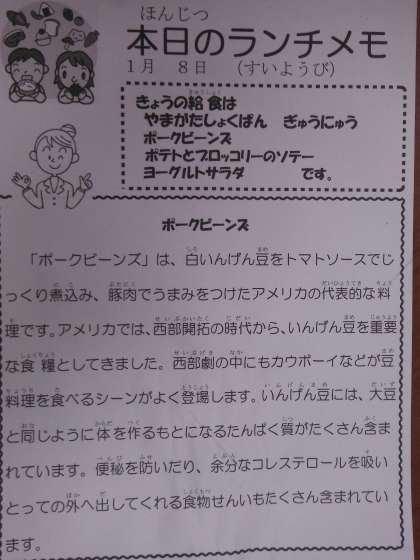 ほんじつ
本日のランチメモ
1月 8日 (すいようび)
きょうの給食は
やまがたしょくぱん ぎゅうにゅう
ポークビーンズ
ポテトとブロッコリーのソテー
ヨーグルトサラダ です。
ポークビーンズ
「ポークビーンズ」は、白いんげん豆をトマトソースでじ
っくり煮込み、豚肉でうまみをつけたアメリカの代表的な料
理です。アメリカでは、西部開拓の時代から、いんげん豆を重要
な食糧としてきました。西部劇の中にもカウボーイなどが豆
料理を食べるシーンがよく登場します。いんげん豆には、大豆
と同じように体を作るもとになるたんぱく質がたくさん含ま
れています。便秘を防いだり、余分なコレステロールを吸い
とっての外へ出してくれる食物せんいもたくさん含まれてい
ます。